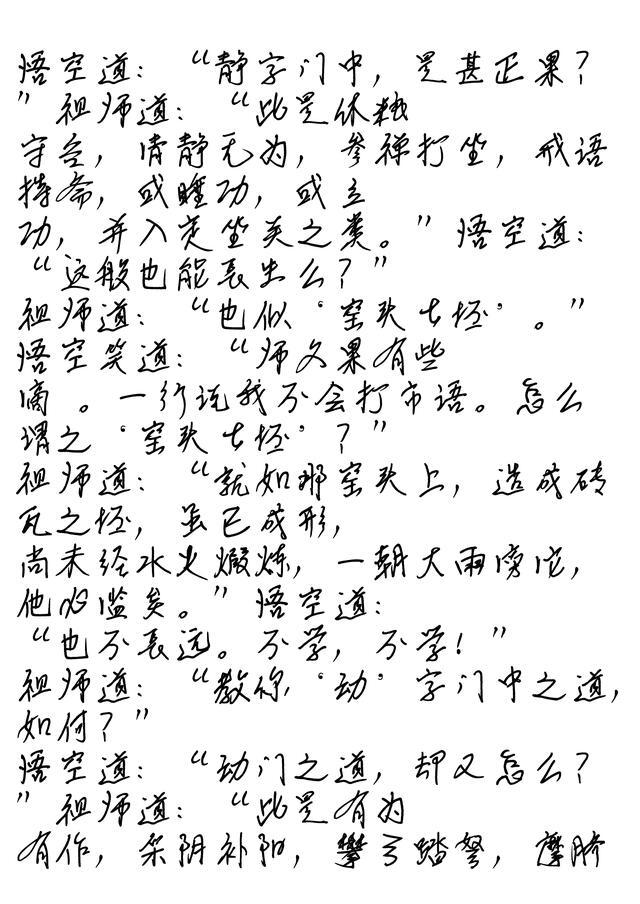 悟空道：“静字门中，是甚正果？
”祖师道：“此是休粮
守谷，清静无为，参禅打坐，戒语
持斋，或睡功，或立
功，并入定坐关之类。”悟空道：
“这般也能长生么？”
祖师道：“也似‘窑头土坯’。”
悟空笑道：“师父果有些
滴 。一行说我不会打市语。怎么
谓之‘窑头土坯’？”
祖师道：“就如那窑头上，造成砖
瓦之坯，虽已成形，
尚未经水火煅炼，一朝大雨滂沱，
他必滥矣。”悟空道：
“也不长远。不学，不学！”
祖师道：“教你‘动’字门中之道，
如何？”
悟空道：“动门之道，却又怎么？
”祖师道：“此是有为
有作，采阴补阳，攀弓踏弩，摩脐